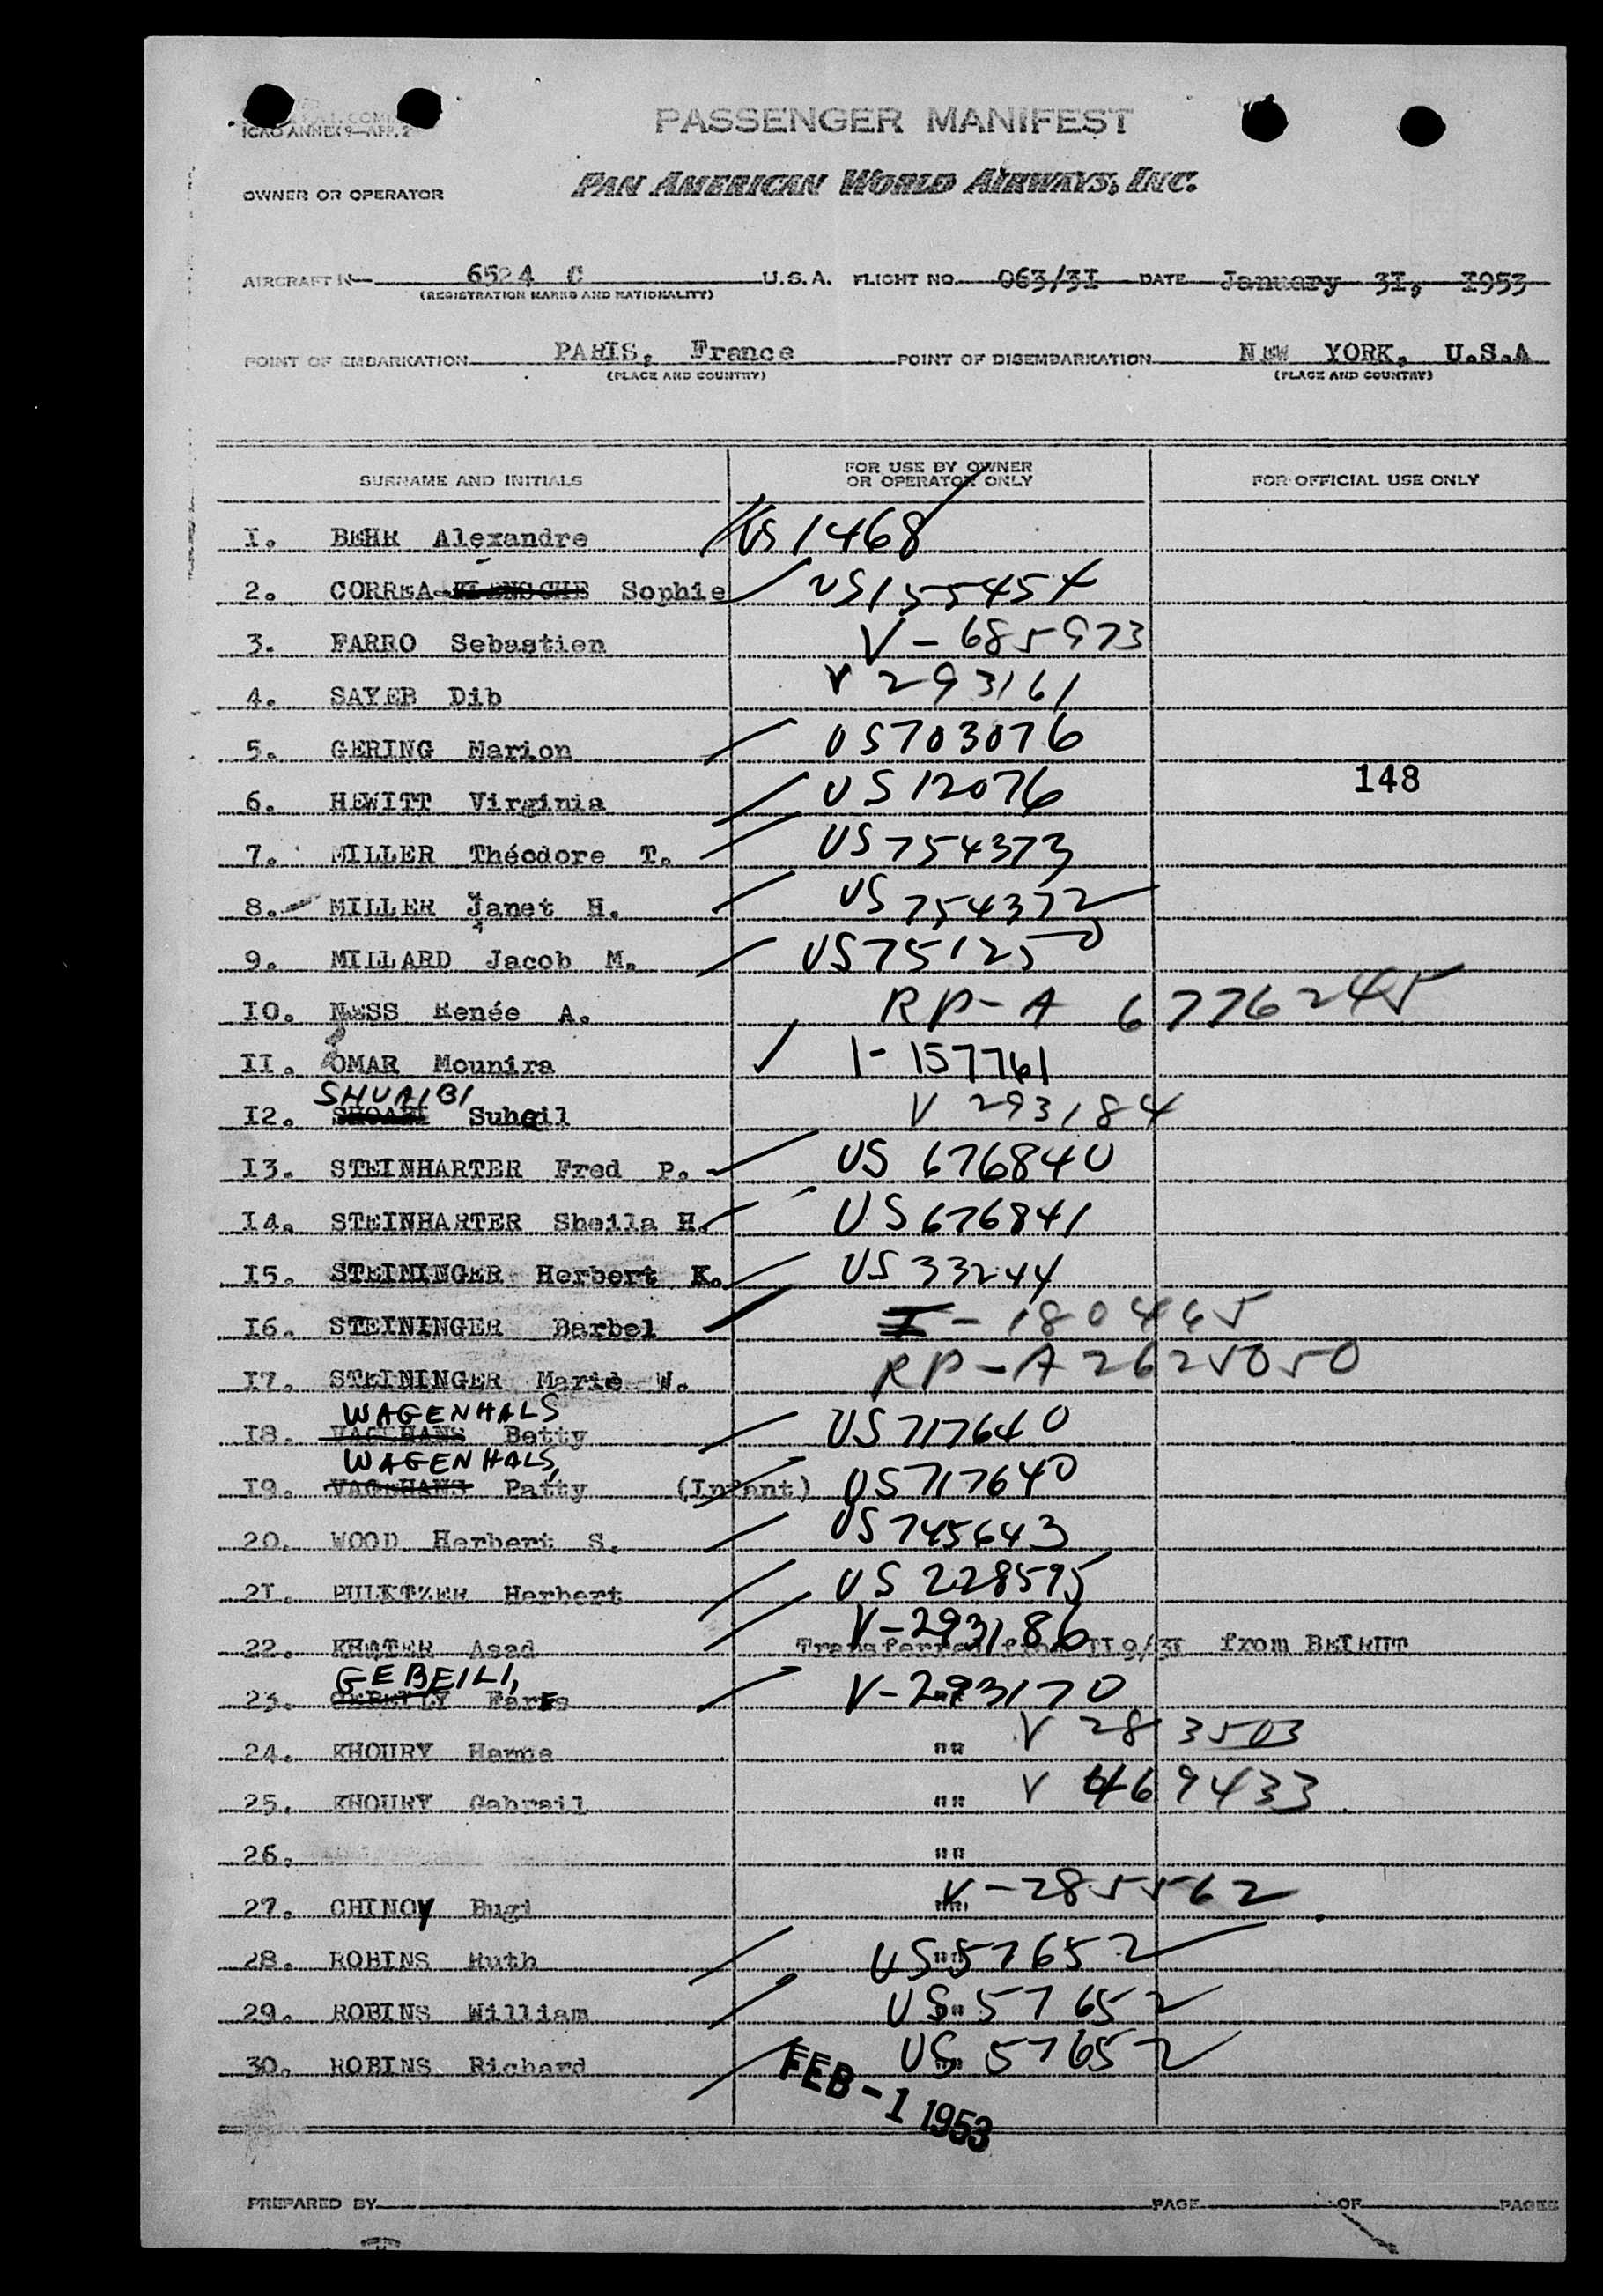 ICAO ANNEX 9—APP. 2
PASSENGER MANIFEST
OWNER OR OPERATOR PAN AMERICAN WORLD AIRWAYS, INC.
AIRCRAFT N 6524 C U.S.A. FLIGHT NO. 063/3I DATE January 3I, I953
(REGISTRATION MARKS AND NATIONALITY)
POINT OF EMBARKATION PARIS, France POINT OF DISEMBARKATION NEW YORK, U.S.A
(PLACE AND COUNTRY) (PLACE AND COUNTRY)
SURNAME AND INITIALS FOR USE BY OWNER OR OPERATOR ONLY FOR OFFICIAL USE ONLY
I. BEHR Alexandre US 1468
2. CORREA- Sophie US155454
3. FARRO Sebastien V-685973
4. SAYEB Dib V 293161
5. GERING Marion US703076
148
6. HEWITT Virginia US 12076
7. MILLER Théodore T. US 754373
8. MILLER Janet H. US 754372
9. MILLARD Jacob M. US751250
I0. NESS Renée A. RP-A 6776245
II. OMAR Mounira I-157761
SHUAIBI
I2. Suheil V 293184
I3. STEINHARTER Fred P. US 676840
I4. STEINHARTER Sheila H. US676841
I5. STEININGER Herbert K. US 33244
I6. STEININGER Barbel I-180465
I7. STEININGER Marie W. RP-A2625050
WAGENHALS
I8. Betty US717640
WAGENHALS,
I9. Patty (Infant) US717640
20. WOOD Herbert S. US745643
2I. PULITZER Herbert US 228595
22. KHATER Asad V-293186 Transferred from II9/3I from BEIRUT
GEBEILI,
23. Fares V-293170
24. KHOURY Hanna "" V 283503
25. KHOURY Gabrail "" V 469433
26. ""
27. CHINOY Bugi "" V-285562
28. ROBINS Ruth "" US 57652
29. ROBINS William "" US 57652
30. ROBINS Richard "" US 57652
FEB-1 1953
PREPARED BY PAGE OF PAGES